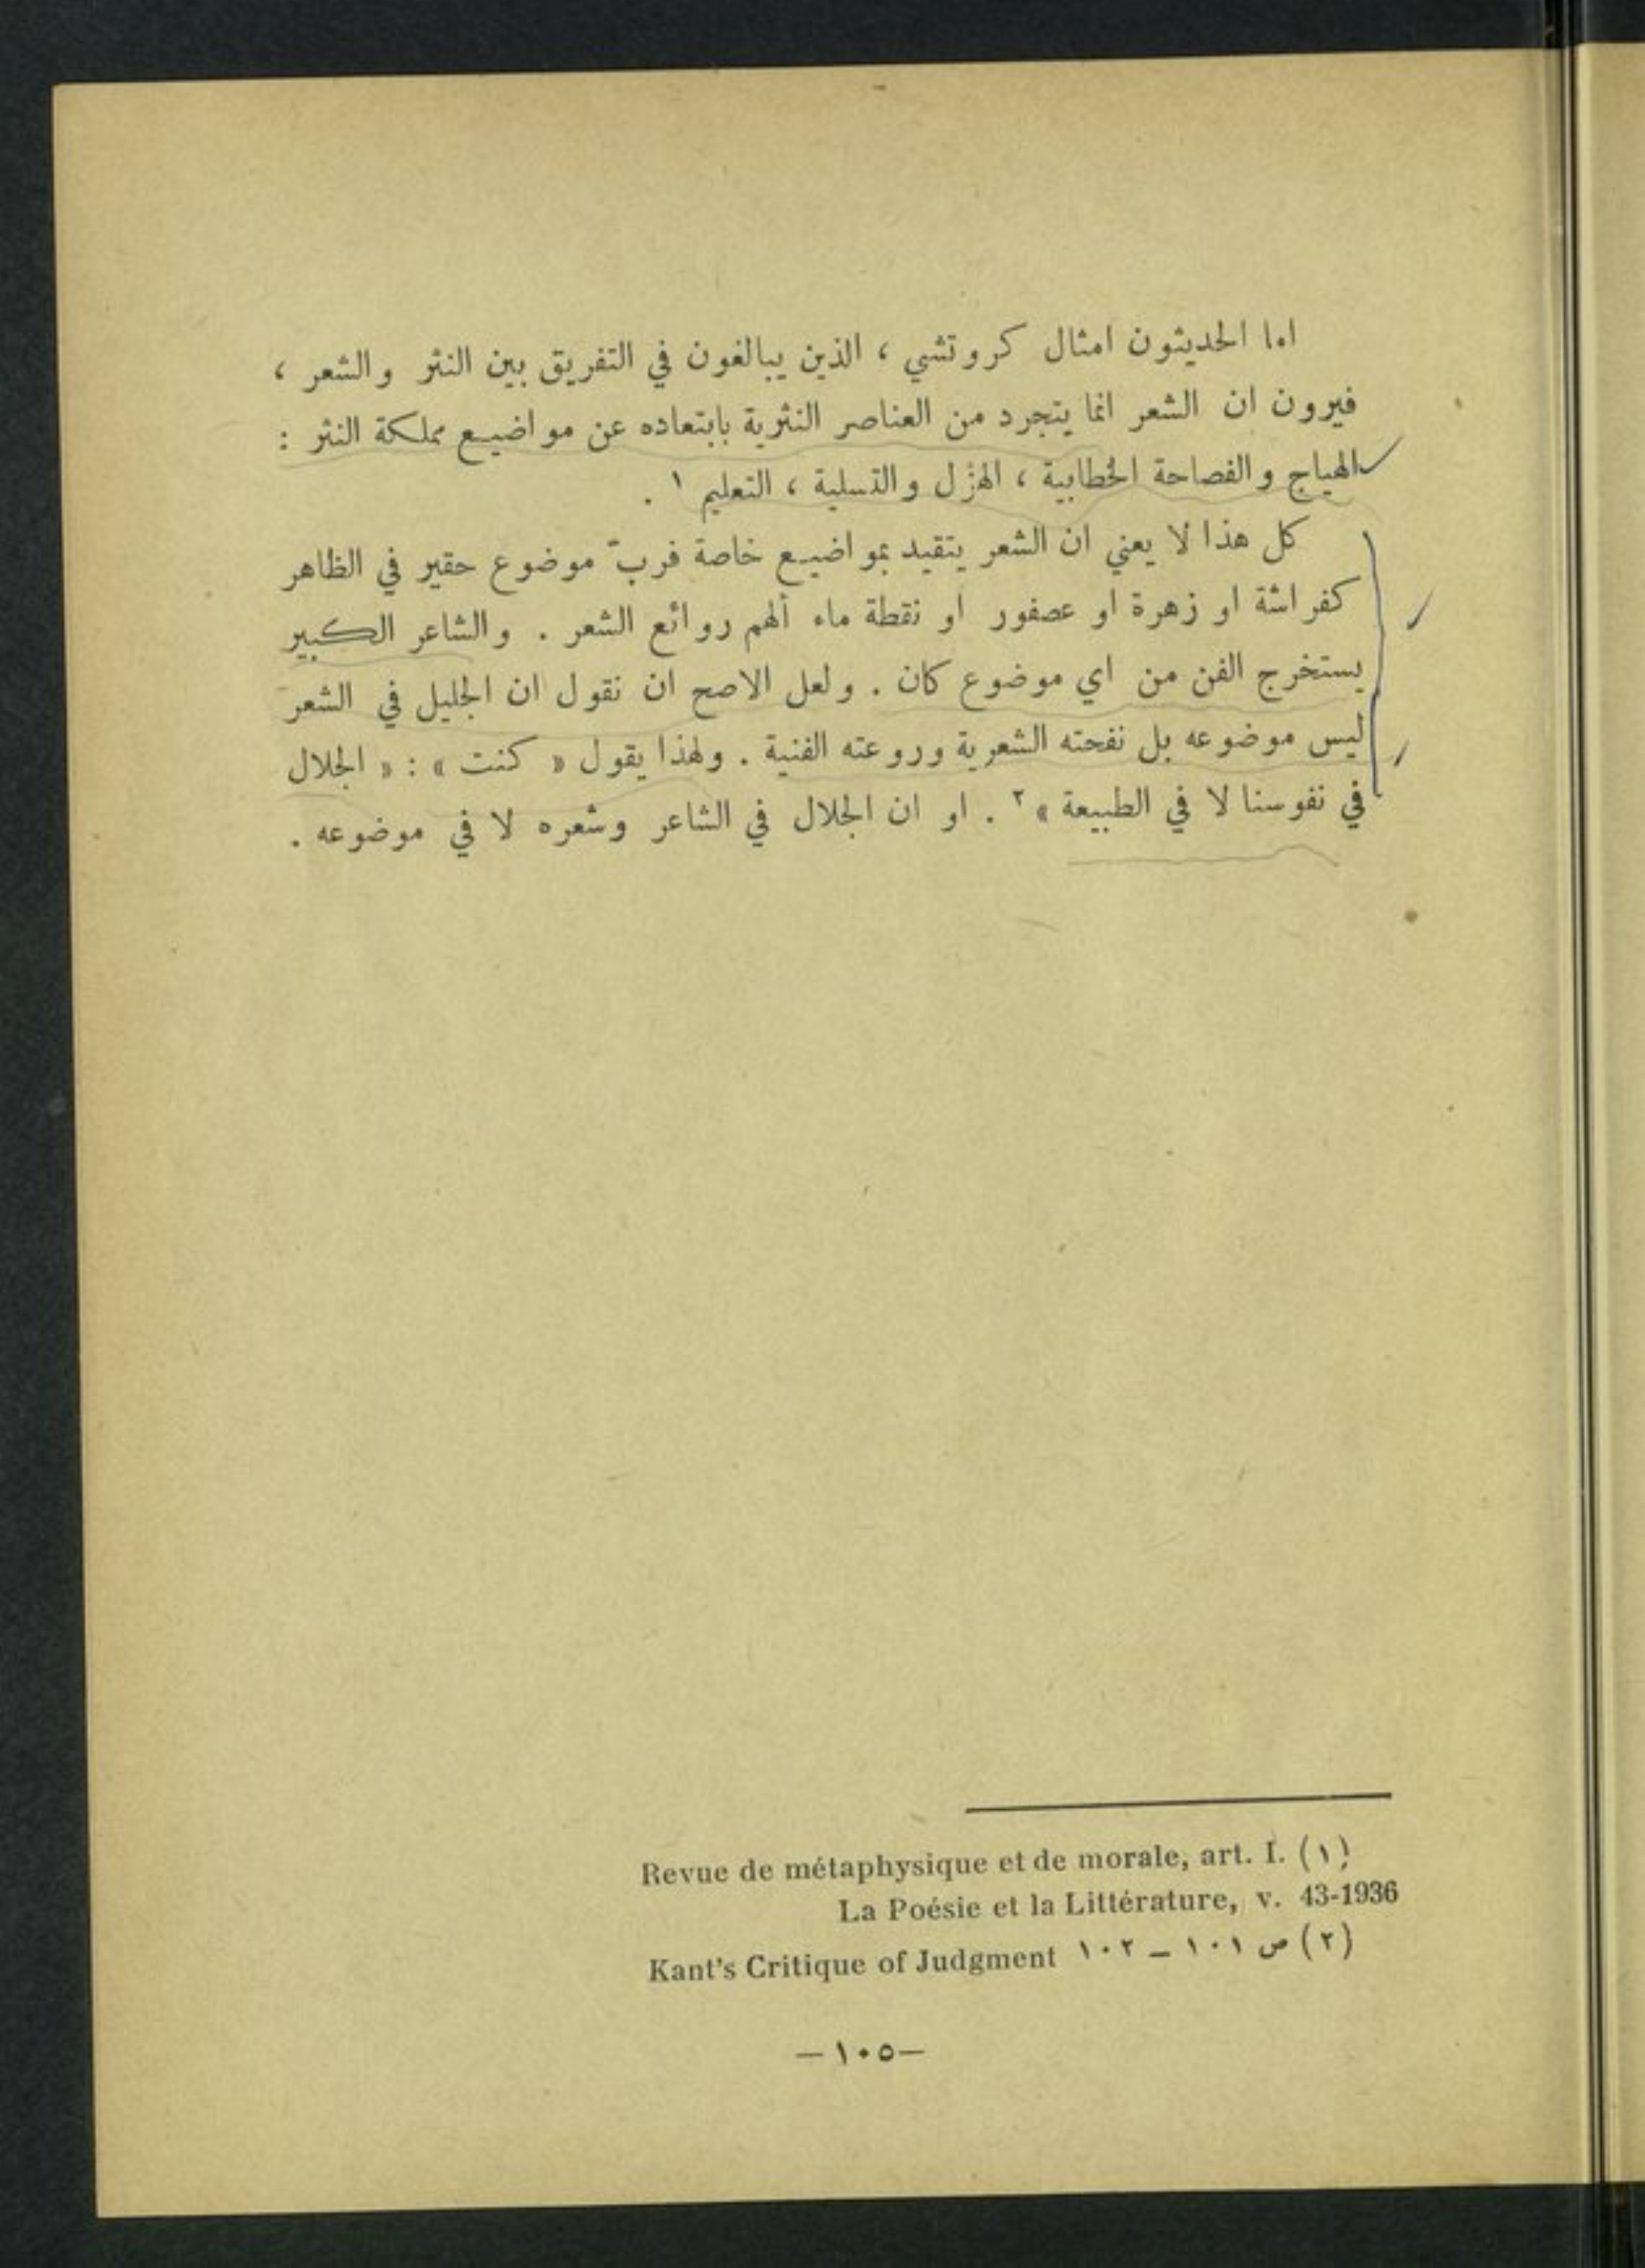 اما الحديثون امثال كروتشي ، الذين يبالغون في التفريق بين النثر والشعر ،
فيرون ان الشعر انما يتجرد من العناصر النثرية بابتعاده عن مواضيع مملكة النثر :
الهياج والفصاحة الخطابية ، الهزل والتسلية ، التعليم ١ .
كل هذا لا يعني ان الشعر يتقيد بمواضيع خاصة فربّ موضوع حقير في الظاهر
كفراشة او زهرة او عصفور او نقطة ماء ألهم روائع الشعر . والشاعر الكبير
يستخرج الفن من اي موضوع كان . ولعل الاصح ان نقول ان الجليل في الشعر
ليس موضوعه بل نفحته الشعرية وروعته الفنية . ولهذا يقول « كنت » : « الجلال
في نفوسنا لا في الطبيعة » ٢ . او ان الجلال في الشاعر وشعره لا في موضوعه .
(١) Revue de métaphysique et de morale, art. I.
La Poésie et la Littérature, v. 43-1936
(٢) ص ١٠١ – ١٠٢ Kant's Critique of Judgment
–١٠٥–